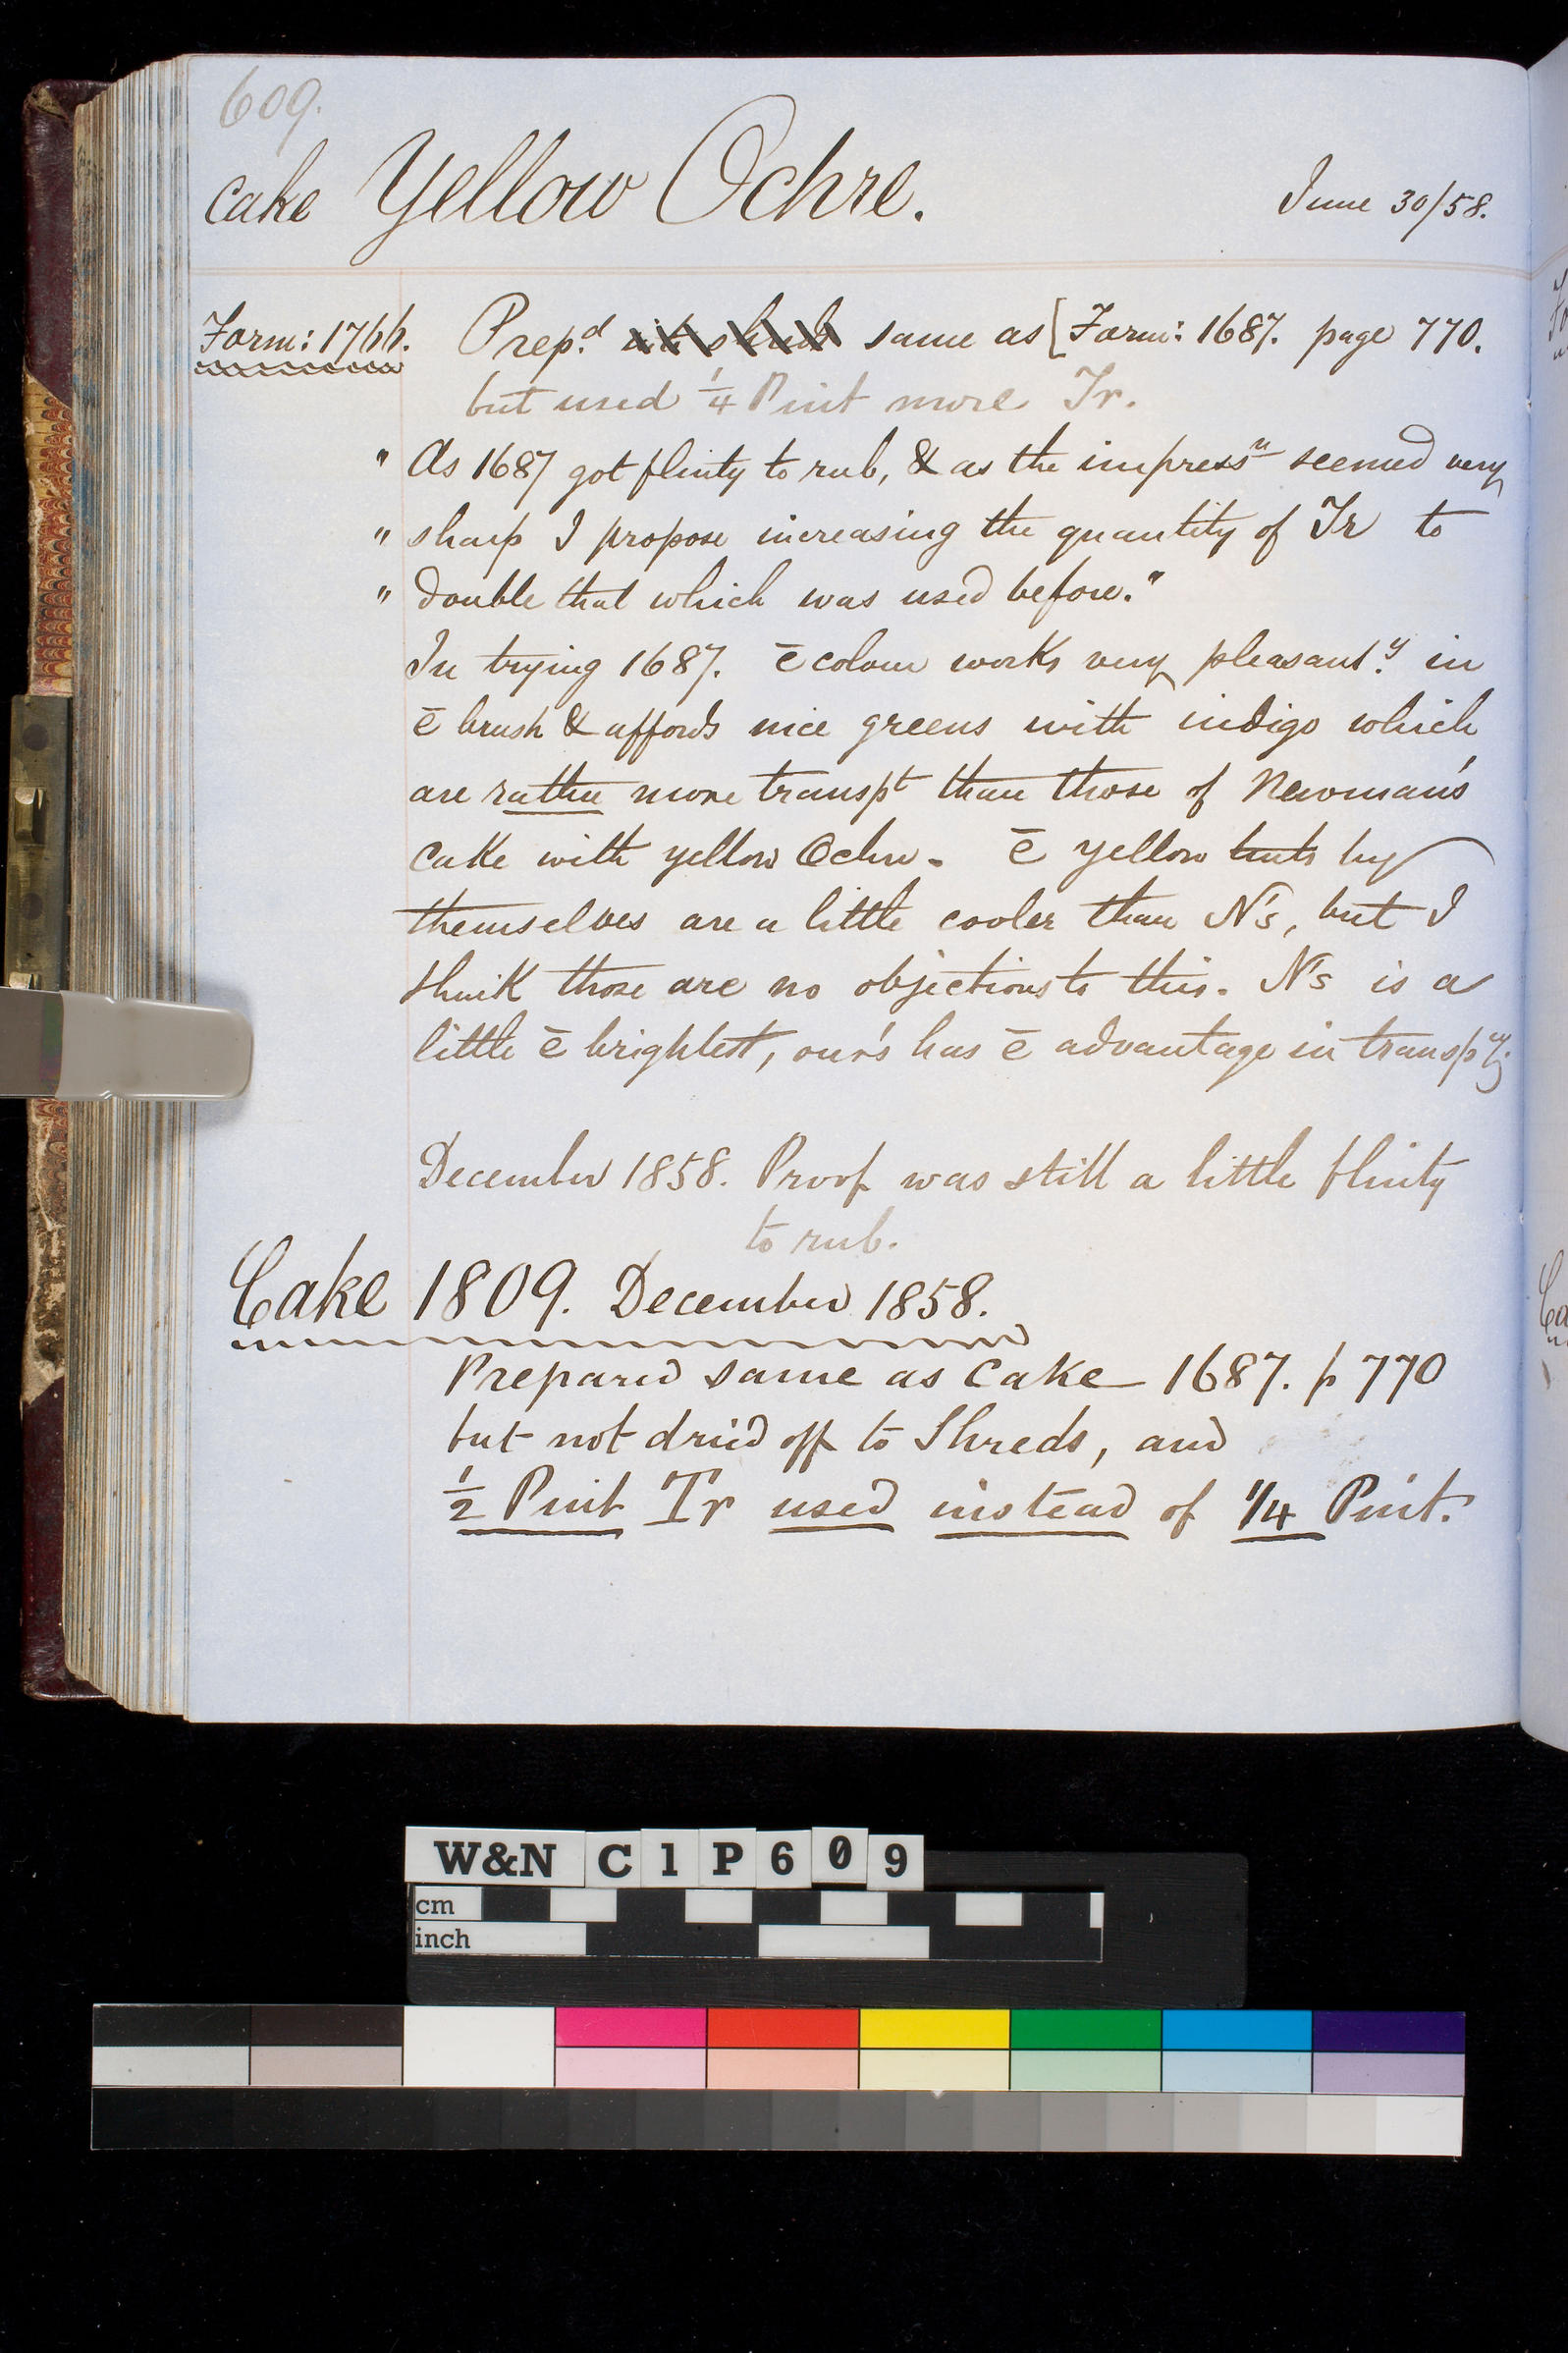 609.
Cake Yellow Ochre. June 30/58.
Form: 1766. Prep.d same as [Form: 1687. page 770.
but used 1/4 Pint more Tr.
" As 1687 got flinty to rub, & as the impressn seemed very
" sharp I propose increasing the quantity of Tr to
" double that which was used before."
In trying 1687. ē colour works very pleasant.y in
ē brush & affords nice greens with indigo which
are rather more transpt than those of Newman's
Cake with yellow Ochre. ē yellow tints by
themselves are a little cooler than N's, but I
think those are no objections to this. N's is a
little ē brightest, our's has ē advantage in transpcy.
December 1858. Proof was still a little flinty
to rub.
Cake 1809. December 1858.
Prepared same as Cake 1687. p 770
but not dried off to Shreds, and
1/2 Pint Tr used instead of 1/4 Pint.
W&N C1P609
cm
inch